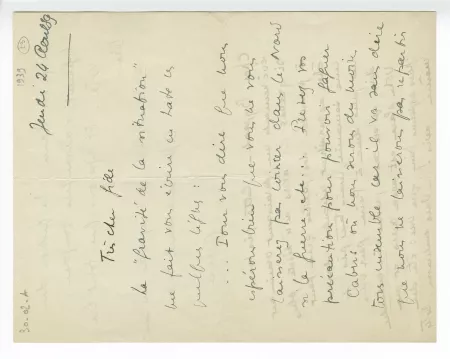 1939 (33)
Jeudi 24 Août
Très cher Gide
La gravité de la situation"
me fait vous écrire en hâte ces
quelques lignes:
... Pour vous dire que nous
espérons bien que vous ne vous
laisserez pas coincer dans le Nord
si la guerre, etc.... Prenez vos
précautions pour pouvoir gagner
Cabris où nous serons du moins
tous ensemble car il va sans dire
que nous ne laisserions pas repartir